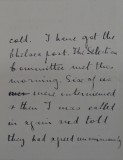 cold. I have got the
Chelsea post. The Selection
Committee met this
morning. Six of us
were interviewed
& then I was called
in again and told
they had agreed unanimously